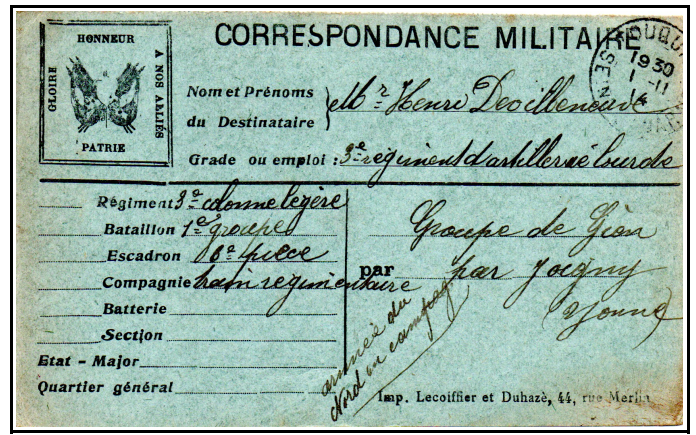 CORRESPONDANCE MILITAIRE
HONNEUR
GLOIRE
A NOS ALLIÉS
PATRIE
1930
1-11
14
Nom et Prénoms
du Destinataire
Mr Henri Devilleneuve
Grade ou emploi : 3e régiment d'artillerie lourde
Régiment 3e colonne legère
Bataillon 1e groupe
Escadron 6e pièce
Compagnie train regimentaire
Batterie
Section
Etat - Major
Quartier général
Groupe de Gion
par par Joigny
(Yonne)
armée du
Nord en campagne
Imp. Lecoiffier et Duhazè, 44, rue Merlin